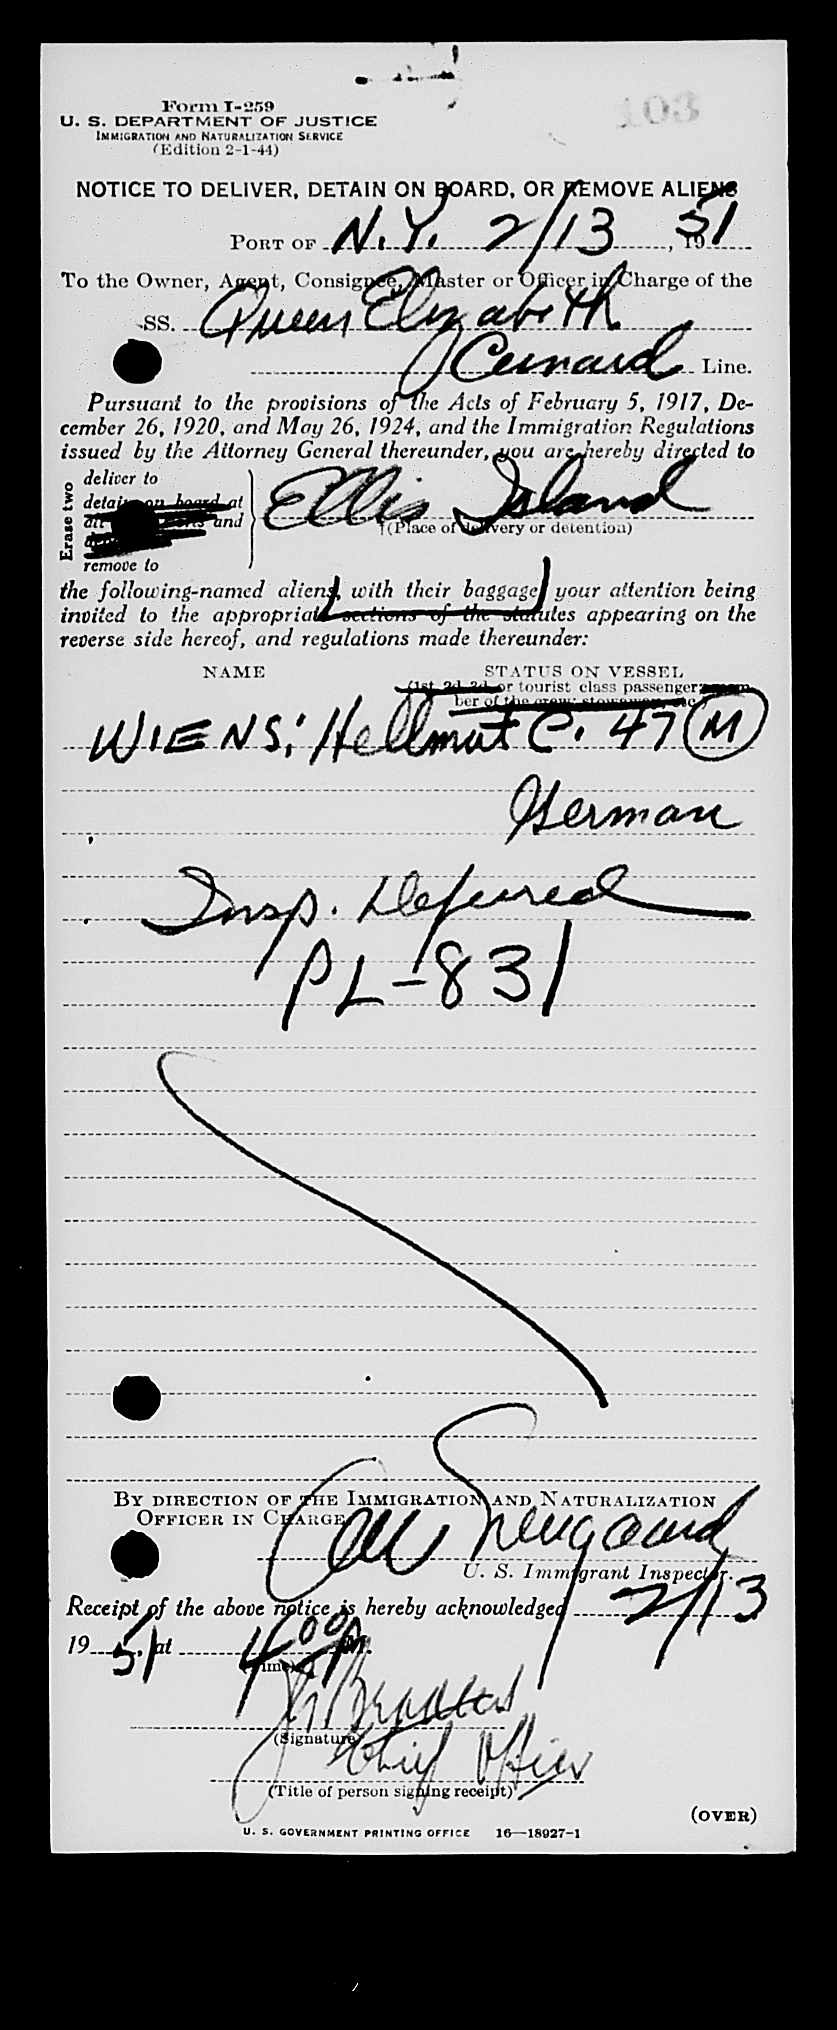 103
Form I-259
U. S. DEPARTMENT OF JUSTICE
IMMIGRATION AND NATURALIZATION SERVICE
(Edition 2-1-44)
NOTICE TO DELIVER, DETAIN ON BOARD, OR REMOVE ALIENS
PORT OF N.Y. 2/13, 1951
To the Owner, Agent, Consignee, Master or Officer in Charge of the
SS. Queen Elizabeth
Cunard Line.
Pursuant to the provisions of the Acts of February 5, 1917, De-
cember 26, 1920, and May 26, 1924, and the Immigration Regulations
issued by the Attorney General thereunder, you are hereby directed to
Erase two
deliver to
detain on board at
and
remove to
Ellis Island
(Place of delivery or detention)
the following-named aliens, with their baggage, your attention being
invited to the appropriate sections of the statutes appearing on the
reverse side hereof, and regulations made thereunder:
NAME STATUS ON VESSEL
(1st, 2d, 3d, or tourist class passenger; mem-
ber of the crew; stowaway, etc.)
WIENS; Hellmut C. 47 M
German
Insp. Deferred
PL-831
BY DIRECTION OF THE IMMIGRATION AND NATURALIZATION
OFFICER IN CHARGE
U. S. Immigrant Inspector.
Receipt of the above notice is hereby acknowledged 2/13
1951, at 4:00 P M.
(Time)
(Signature)
Chief Officer
(Title of person signing receipt)
(OVER)
U. S. GOVERNMENT PRINTING OFFICE 16—18927-1